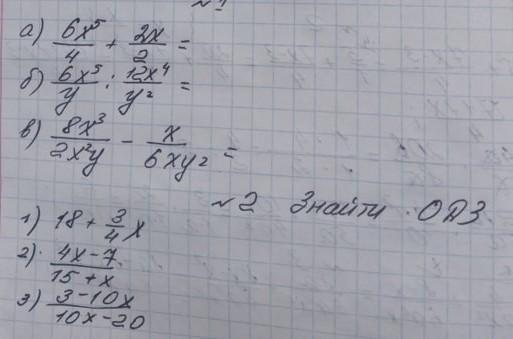 №1
а) 6x⁵/4 + 2x/2 =
б) 6x⁵/y : 12x⁴/y² =
в) 8x³/2x²y − x/6xy² =
№2 Знайти ОДЗ
1) 18 + 3/4 x
2) 4x−7/15+x
3) 3−10x/10x−20